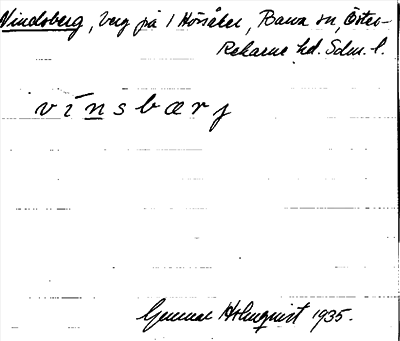 Vindsberg, berg på 1 Hörsåker, Barva sn, Öster-
Rekarne hd. Sdm. l.
vīnsbærj
Gunnar Holmquist 1935.